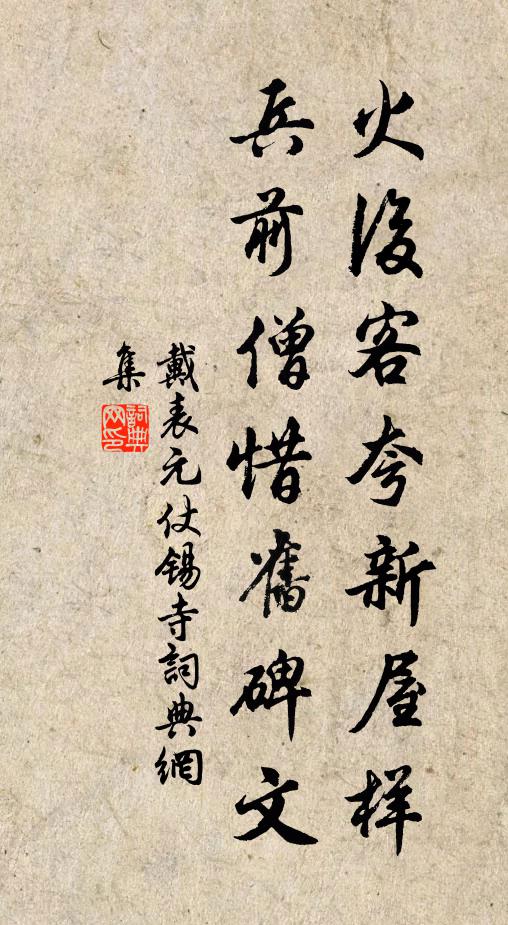 火後客夸新屋样
兵前僧惜舊碑文
戴表元仗錫寺詞典網
集
詞典
网印